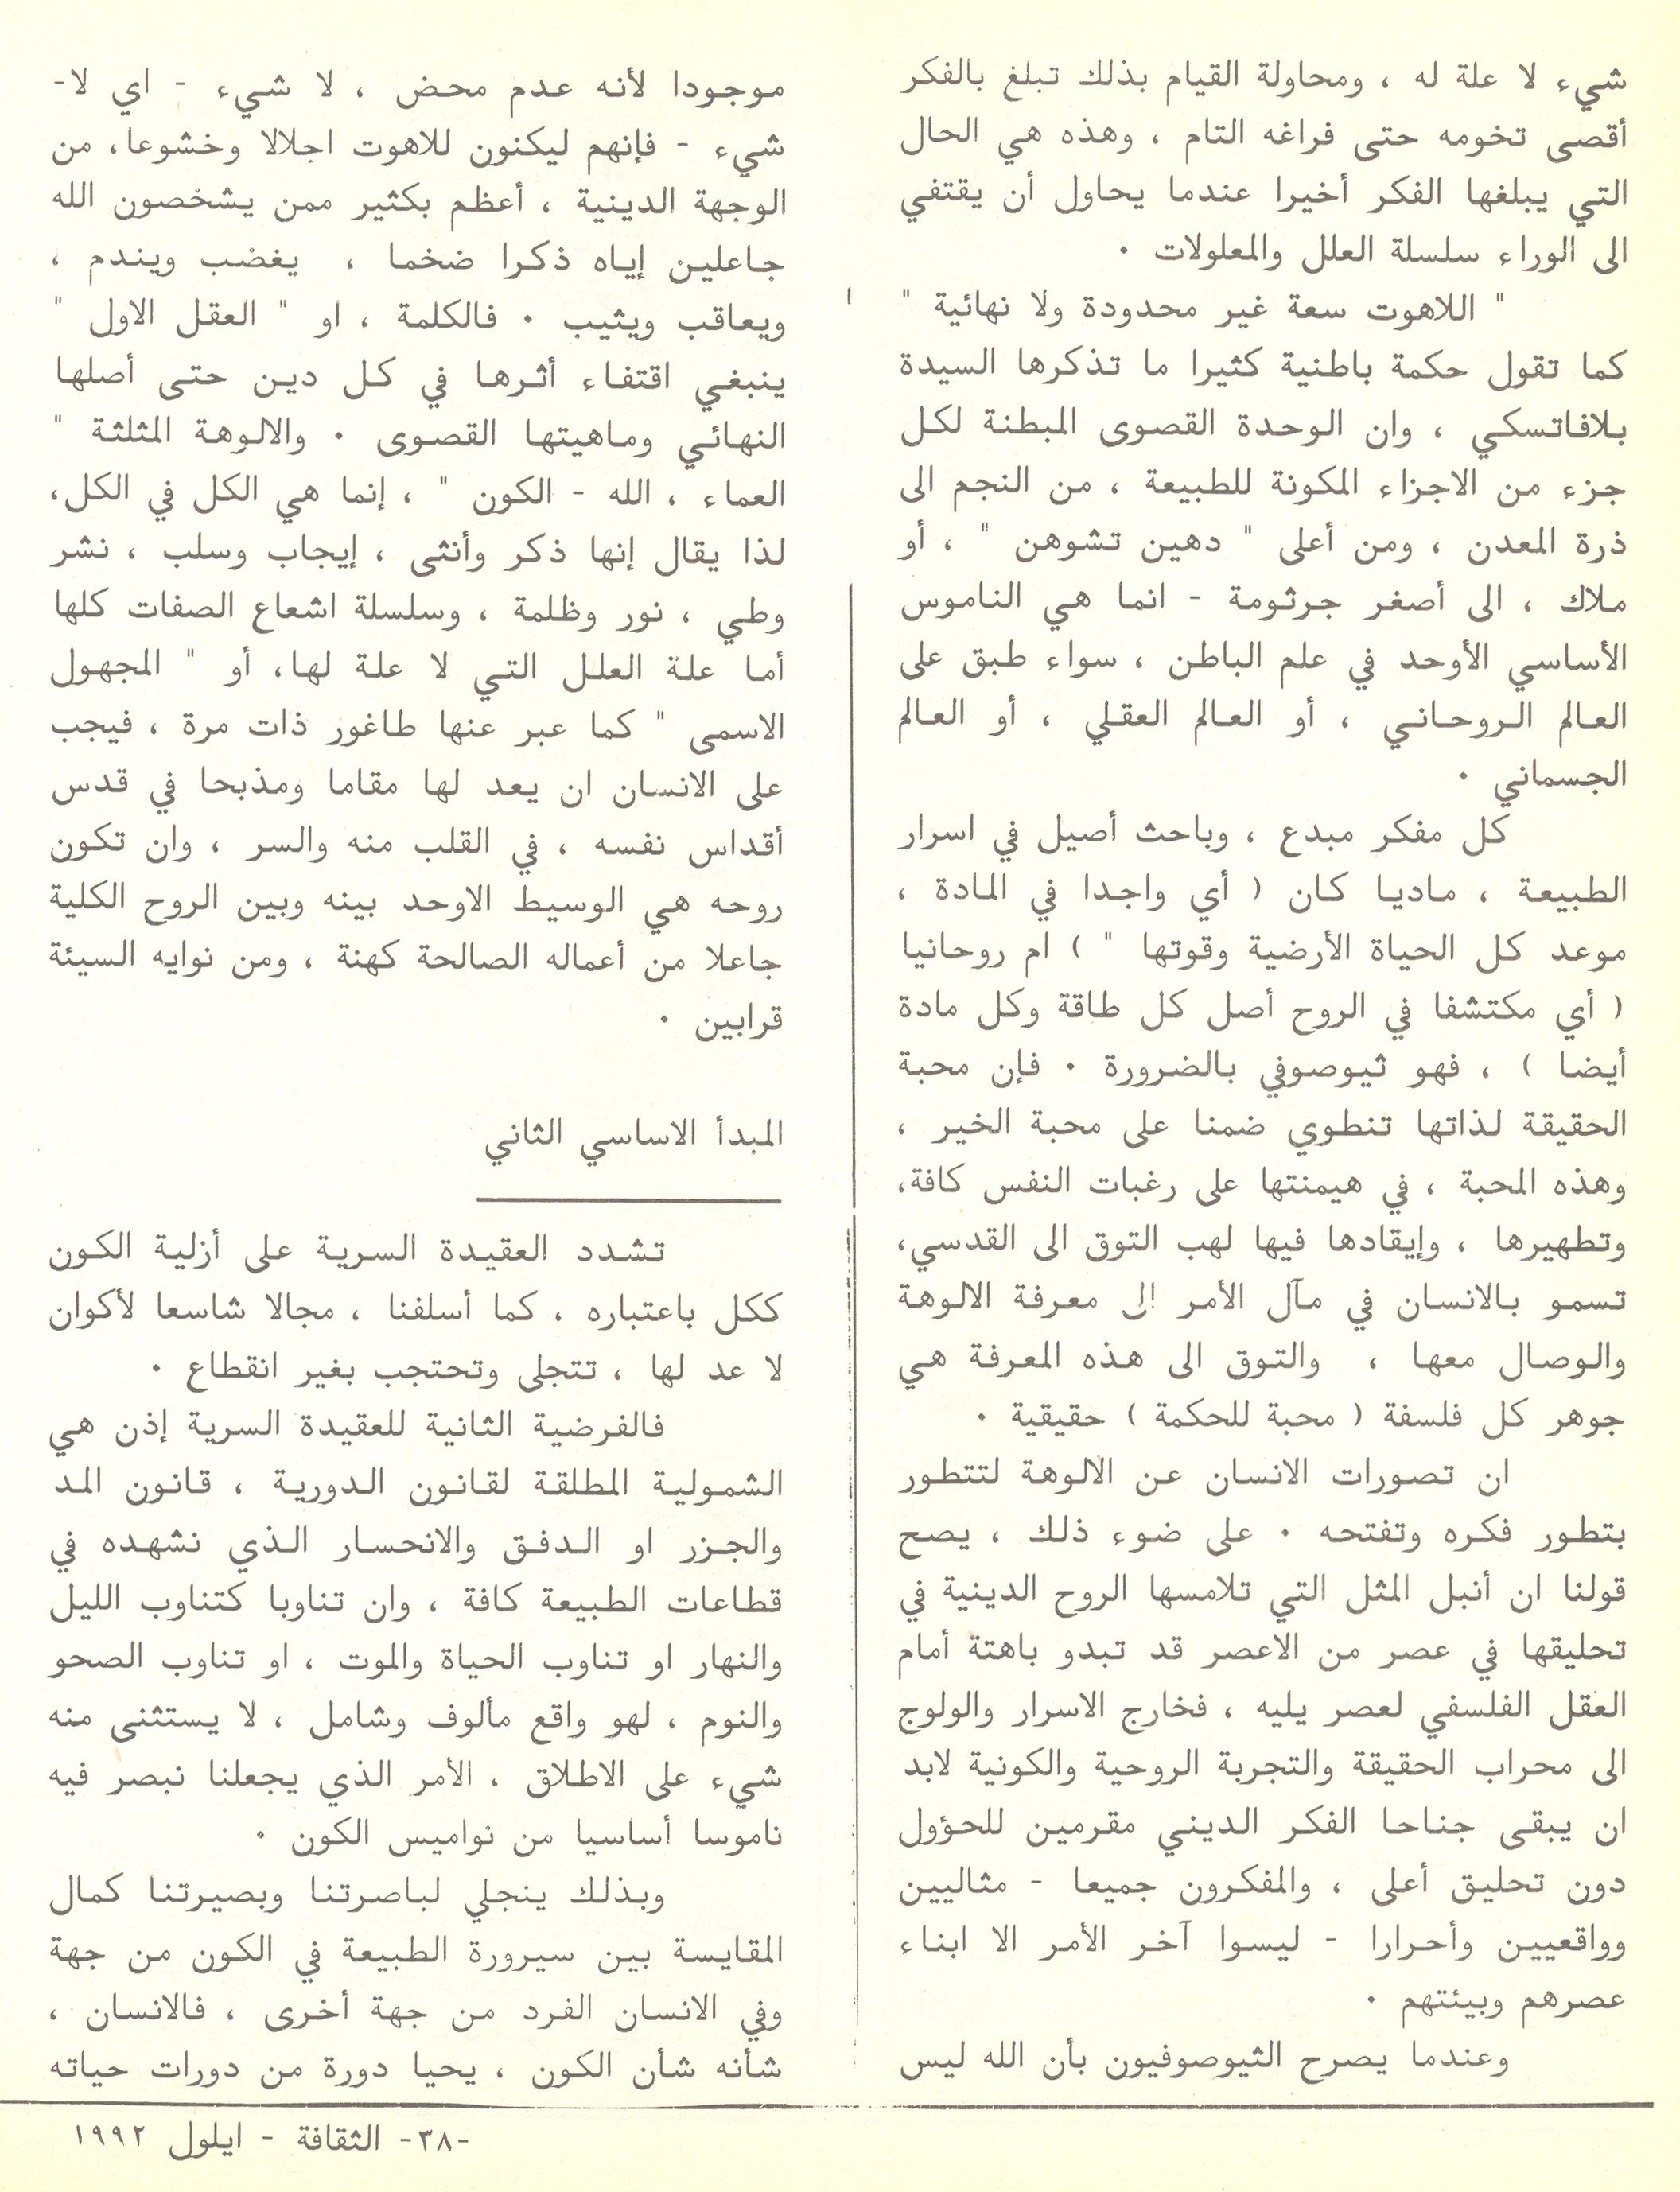 شيء لا علة له ، ومحاولة القيام بذلك تبلغ بالفكر
أقصى تخومه حتى فراغه التام ، وهذه هي الحال
التي يبلغها الفكر أخيرا عندما يحاول أن يقتفي
الى الوراء سلسلة العلل والمعلولات ٠
" اللاهوت سعة غير محدودة ولا نهائية "
كما تقول حكمة باطنية كثيرا ما تذكرها السيدة
بلافاتسكي ، وان الوحدة القصوى المبطنة لكل
جزء من الاجزاء المكونة للطبيعة ، من النجم الى
ذرة المعدن ، ومن أعلى " دهين تشوهن " ، أو
ملاك ، الى أصغر جرثومة - انما هي الناموس
الأساسي الأوحد في علم الباطن ، سواء طبق على
العالم الروحاني ، أو العالم العقلي ، أو العالم
الجسماني ٠
كل مفكر مبدع ، وباحث أصيل في اسرار
الطبيعة ، ماديا كان ( أي واجدا في المادة ،
موعد كل الحياة الأرضية وقوتها " ) ام روحانيا
( أي مكتشفا في الروح أصل كل طاقة وكل مادة
أيضا ) ، فهو ثيوصوفي بالضرورة ٠ فإن محبة
الحقيقة لذاتها تنطوي ضمنا على محبة الخير ،
وهذه المحبة ، في هيمنتها على رغبات النفس كافة،
وتطهيرها ، وإيقادها فيها لهب التوق الى القدسي،
تسمو بالانسان في مآل الأمر الى معرفة الالوهة
والوصال معها ، والتوق الى هذه المعرفة هي
جوهر كل فلسفة ( محبة للحكمة ) حقيقية ٠
ان تصورات الانسان عن الالوهة لتتطور
بتطور فكره وتفتحه ٠ على ضوء ذلك ، يصح
قولنا ان أنبل المثل التي تلامسها الروح الدينية في
تحليقها في عصر من الاعصر قد تبدو باهتة أمام
العقل الفلسفي لعصر يليه ، فخارج الاسرار والولوج
الى محراب الحقيقة والتجربة الروحية والكونية لابد
ان يبقى جناحا الفكر الديني مقرمين للحؤول
دون تحليق أعلى ، والمفكرون جميعا - مثاليين
وواقعيين وأحرارا - ليسوا آخر الأمر الا ابناء
عصرهم وبيئتهم ٠
وعندما يصرح الثيوصوفيون بأن الله ليس
موجودا لأنه عدم محض ، لا شيء - اي لا-
شيء - فإنهم ليكنون للاهوت اجلالا وخشوعا، من
الوجهة الدينية ، أعظم بكثير ممن يشخصون الله
جاعلين إياه ذكرا ضخما ، يغضب ويندم ،
ويعاقب ويثيب ٠ فالكلمة ، او " العقل الاول "
ينبغي اقتفاء أثرها في كل دين حتى أصلها
النهائي وماهيتها القصوى ٠ والالوهة المثلثة "
العماء ، الله - الكون " ، إنما هي الكل في الكل،
لذا يقال إنها ذكر وأنثى ، إيجاب وسلب ، نشر
وطي ، نور وظلمة ، وسلسلة اشعاع الصفات كلها
أما علة العلل التي لا علة لها، أو " المجهول
الاسمى " كما عبر عنها طاغور ذات مرة ، فيجب
على الانسان ان يعد لها مقاما ومذبحا في قدس
أقداس نفسه ، في القلب منه والسر ، وان تكون
روحه هي الوسيط الاوحد بينه وبين الروح الكلية
جاعلا من أعماله الصالحة كهنة ، ومن نوايه السيئة
قرابين ٠
المبدأ الاساسي الثاني
تشدد العقيدة السرية على أزلية الكون
ككل باعتباره ، كما أسلفنا ، مجالا شاسعا لأكوان
لا عد لها ، تتجلى وتحتجب بغير انقطاع ٠
فالفرضية الثانية للعقيدة السرية إذن هي
الشمولية المطلقة لقانون الدورية ، قانون المد
والجزر او الدفق والانحسار الذي نشهده في
قطاعات الطبيعة كافة ، وان تناوبا كتناوب الليل
والنهار او تناوب الحياة والموت ، او تناوب الصحو
والنوم ، لهو واقع مألوف وشامل ، لا يستثنى منه
شيء على الاطلاق ، الأمر الذي يجعلنا نبصر فيه
ناموسا أساسيا من نواميس الكون ٠
وبذلك ينجلي لباصرتنا وبصيرتنا كمال
المقايسة بين سيرورة الطبيعة في الكون من جهة
وفي الانسان الفرد من جهة أخرى ، فالانسان ،
شأنه شأن الكون ، يحيا دورة من دورات حياته
-٣٨- الثقافة - ايلول ١٩٩٢